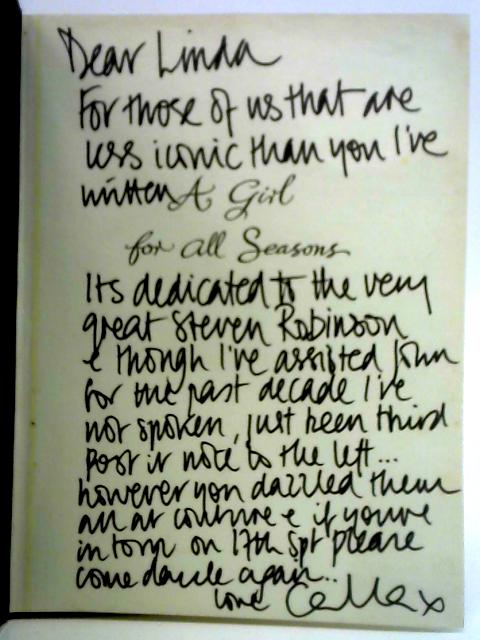 Dear Linda
For those of us that are
less iconic than you I've
written A Girl
for all Seasons
Its dedicated to the very
great Steven Robinson
& though I've assisted John
for the past decade I've
not spoken, just been third
post it note to the left...
however you dazzled them
all at couture & if you're
in town on 17th Spt please
come dazzle again..
love